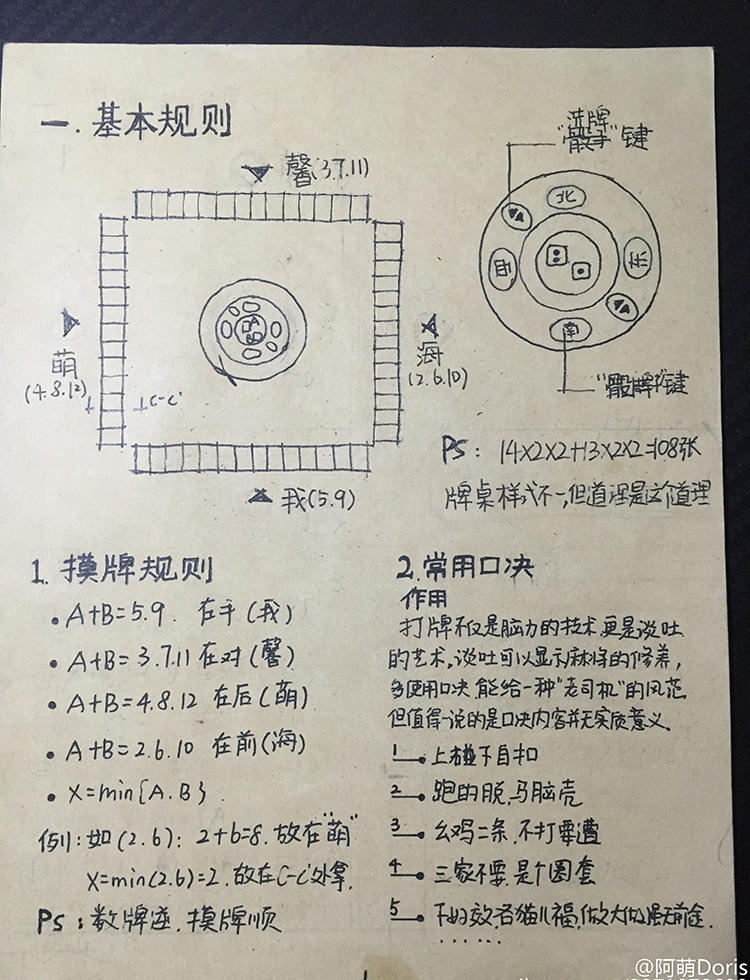 一. 基本规则
馨(3.7.11)
萌
(4.8.12)
C-C'
海
(2.6.10)
我(5.9)
洗牌
"骰子"键
北
西
东
南
键
PS: 14×2×2+13×2×2=108张
牌桌样式不一,但道理是这个道理
1. 摸牌规则
• A+B=5.9. 在手(我)
• A+B=3.7.11 在对(馨)
• A+B=4.8.12 在后(萌)
• A+B=2.6.10 在前(海)
• X=min{A.B}
例:如(2.6): 2+6=8. 放在"萌"
X=min(2.6)=2. 放在C-C'处拿.
PS: 数牌逆.摸牌顺
2.常用口决
作用
打牌不仅是脑力的技术.更是谈吐
的艺术.谈吐可以显示麻将的修养,
多使用口决 能给一种"老司机"的风范
但值得一说的是口决内容并无实质意义.
1 上碰下自扣
2 跑的脱.马脑壳
3 幺鸡二条.不打要遭
4 三家不要.是个圈套
5 猫儿福,做大做强无前途.
......
@阿萌Doris